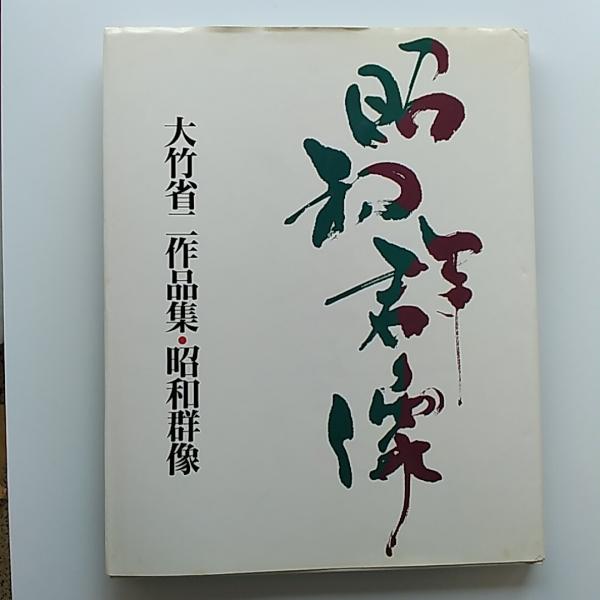 昭和群像
大竹省二作品集・昭和群像